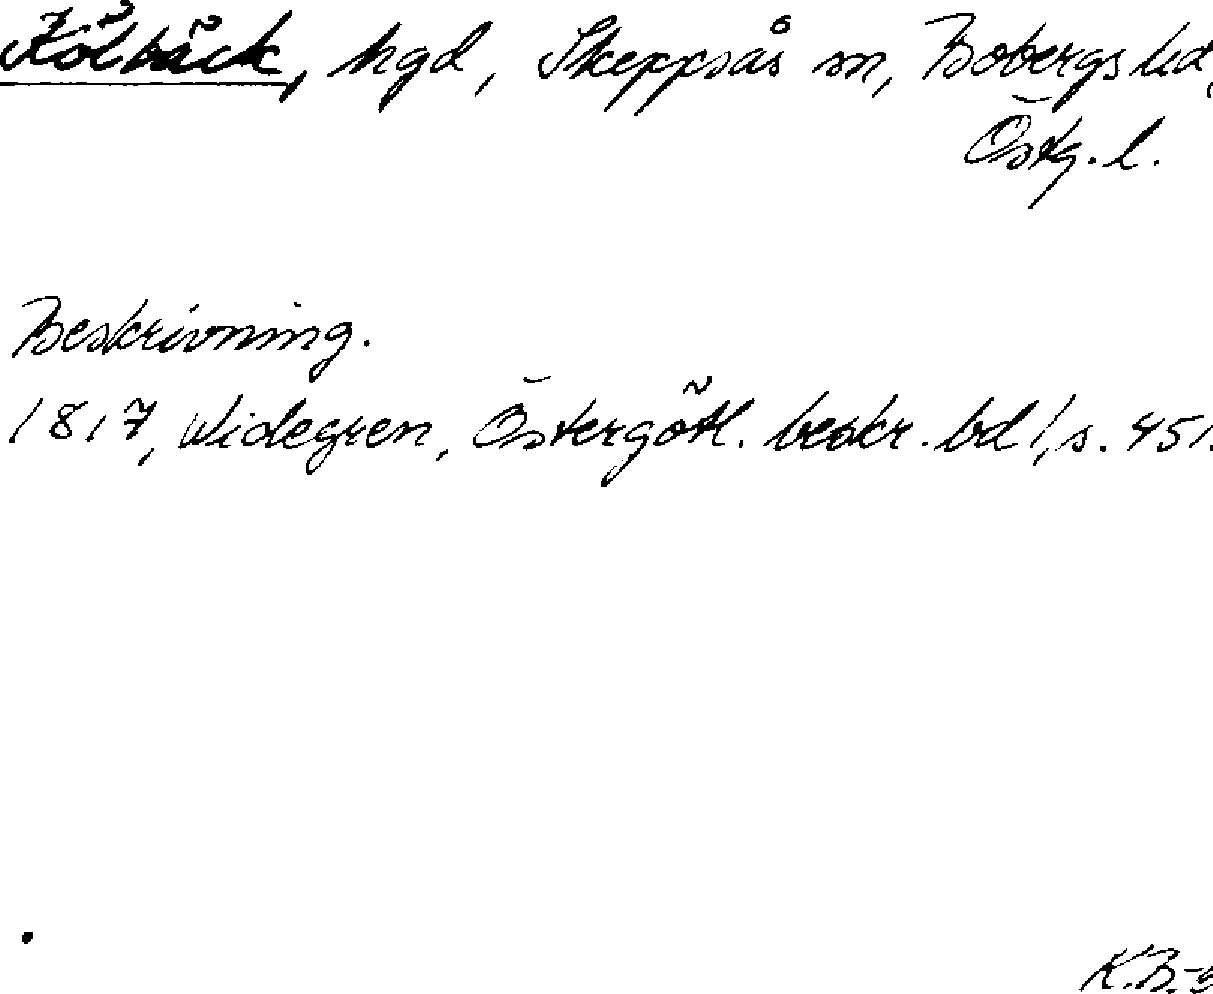 Kölbäck, hgd, Skeppsås sn, Bobergs hd,
Östg. l.
Beskrivning.
1817, Widegren, Östergötl. beskr. bd 1, s. 451.
K.B-s